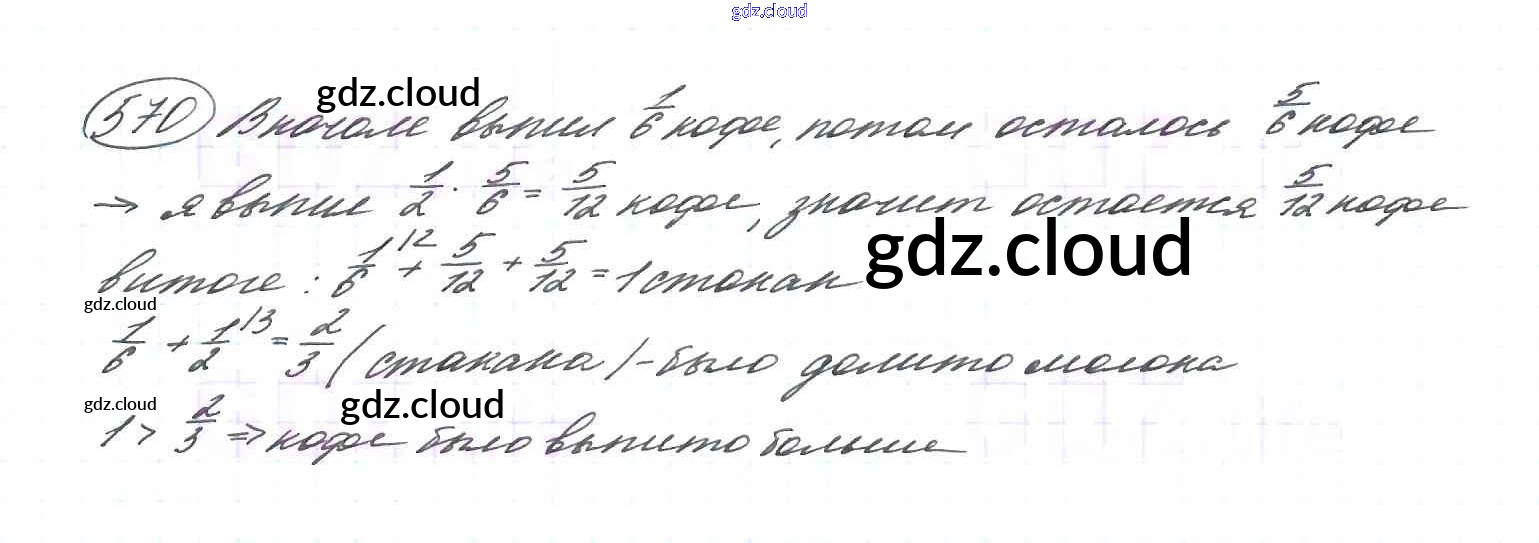 gdz.cloud
570 Вначале выпил 1/6 кофе, потом осталось 5/6 кофе
gdz.cloud
→ я выпил 1/2 · 5/6 = 5/12 кофе, значит остается 5/12 кофе
gdz.cloud
в итоге: 1/6 \2 + 5/12 + 5/12 = 1 стакан
gdz.cloud
1/6 + 1/2 \3 = 2/3 (стакана) - было долито молока
gdz.cloud
gdz.cloud
1 > 2/3 => кофе было выпито больше